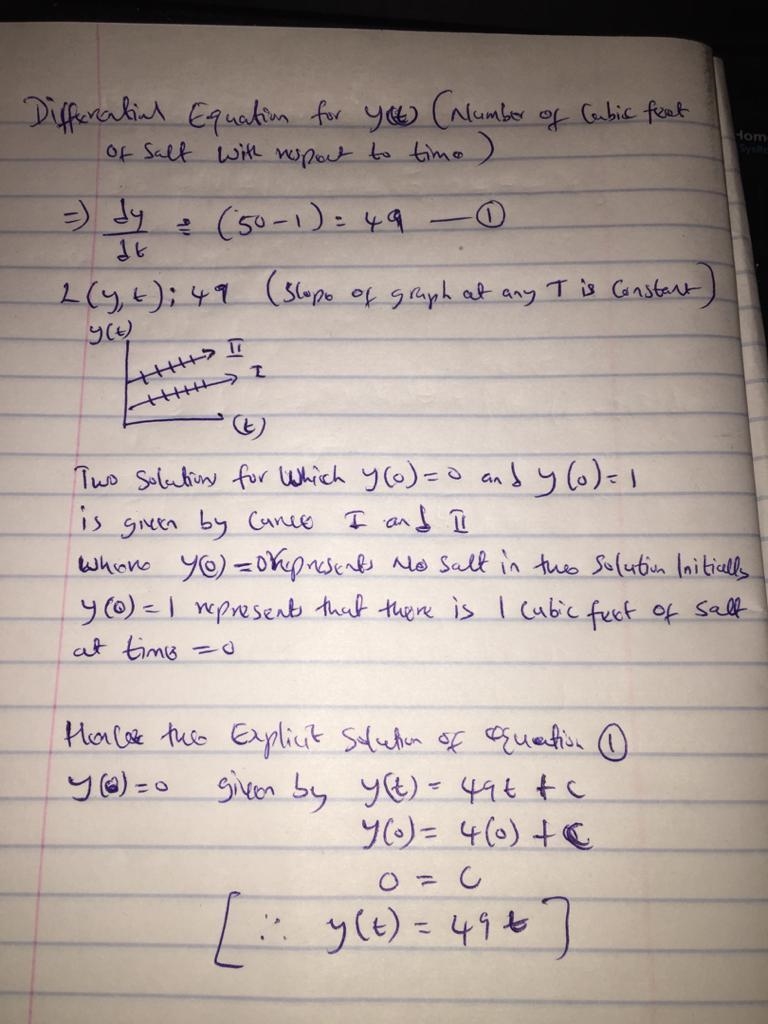 Differential Equation for y(t) (Number of Cubic feet
of Salt with respect to time)
=> dy/dt = (50-1) = 49 — ①
L(y,t); 49 (Slope of graph at any T is Constant)
y(t)
II
I
(t)
Two Solutions for which y(0)=0 and y(0)=1
is given by Curve I and II
Where y(0)=0 represents No Salt in the Solution Initially
y(0)=1 represent that there is 1 Cubic feet of Salt
at time =0
Hence the Explicit Solution of equation ①
y(0)=0 given by y(t) = 49t + C
y(0) = 4(0) + C
0 = C
[∴ y(t) = 49t]
Hom